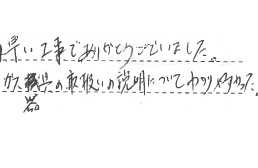 早い工事でありがとうございました。
ガス器具の取扱いの説明についてわかりやすかった。